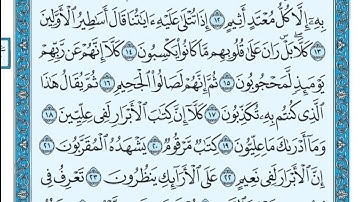 بِهِۦٓ إِلَّا كُلُّ مُعۡتَدٍ أَثِيمٍ ١٢ إِذَا تُتۡلَىٰ عَلَيۡهِ ءَايَٰتُنَا قَالَ أَسَٰطِيرُ ٱلۡأَوَّلِينَ
١٣ كَلَّاۖ بَلۡۜ رَانَ عَلَىٰ قُلُوبِهِم مَّا كَانُواْ يَكۡسِبُونَ ١٤ كَلَّآ إِنَّهُمۡ عَن رَّبِّهِمۡ
يَوۡمَئِذٖ لَّمَحۡجُوبُونَ ١٥ ثُمَّ إِنَّهُمۡ لَصَالُواْ ٱلۡجَحِيمِ ١٦ ثُمَّ يُقَالُ هَٰذَا
ٱلَّذِي كُنتُم بِهِۦ تُكَذِّبُونَ ١٧ كَلَّآ إِنَّ كِتَٰبَ ٱلۡأَبۡرَارِ لَفِي عِلِّيِّينَ ١٨
وَمَآ أَدۡرَىٰكَ مَا عِلِّيُّونَ ١٩ كِتَٰبٞ مَّرۡقُومٞ ٢٠ يَشۡهَدُهُ ٱلۡمُقَرَّبُونَ ٢١
إِنَّ ٱلۡأَبۡرَارَ لَفِي نَعِيمٍ ٢٢ عَلَى ٱلۡأَرَآئِكِ يَنظُرُونَ ٢٣ تَعۡرِفُ فِي